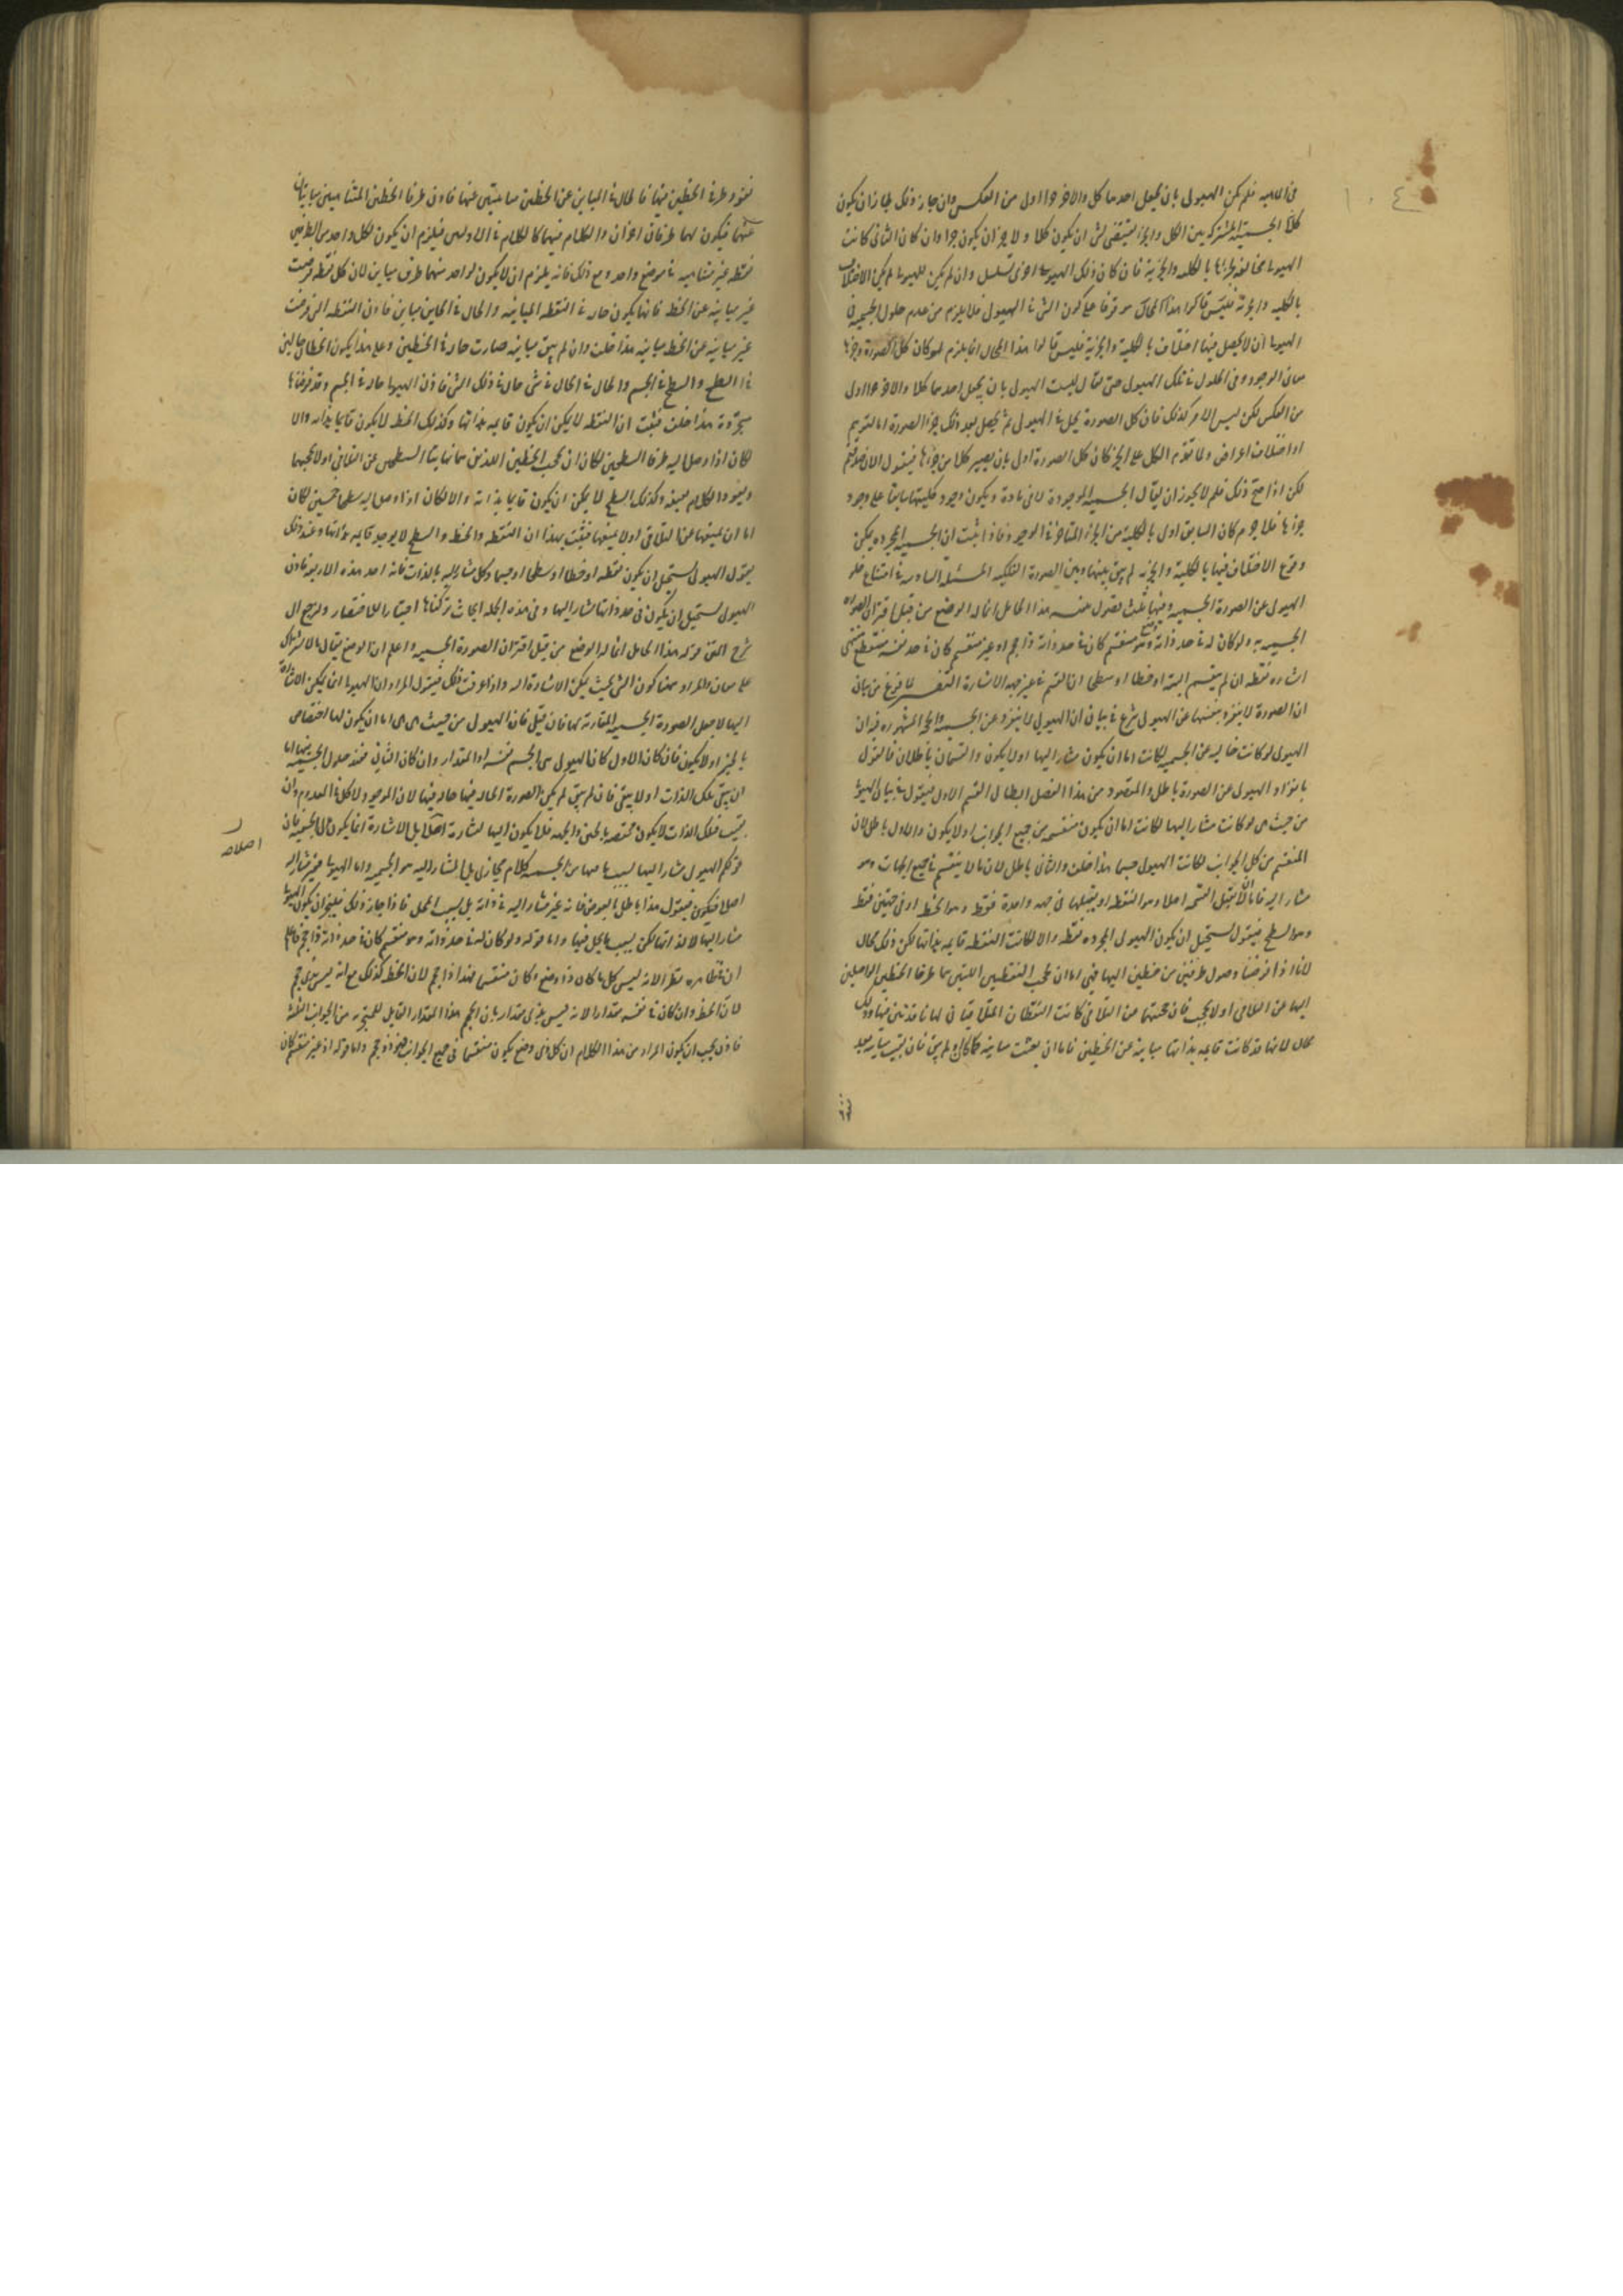 فى الماهية فلم تكن الهيولى بان يجعل احدهما كلا والاخر جزءا اولى من العكس وان جاز ذلك لجاز ان يكون
كلا الجسمية المشتركة بين الكل والجزء تقتضى لشئ ان يكون كلا ولاخر ان يكون جزءا وان كان الثانى كانت
الهيولى مخالفة لجزئها بالكلية والجزئية فان كان ذلك لهيولى اخرى تسلسل وان لم يكن للهيولى لم يكن الاختلاف
بالكلية والجزئية فليس قالوا هذا المحال موقوفا على كون الشئ فى الهيولى فلا يلزم من عدم حلول الجسمية فى
الهيولى ان لا يحصل فيها اختلاف بالكلية والجزئية فليس قالوا هذا المحال انما يلزم لو كان كل الصورة وجزءها
معا فى الوجود وفى الحلول فى تلك الهيولى حتى يقال ليست الهيولى بان يجعل احدهما كلا والاخر جزءا اولى
من العكس لكن ليس الامر كذلك فان كل الصورة يحل فى الهيولى ثم يحصل بعد ذلك جزء الصورة اما لتوهم
او اختلاف اعراض ولما تقدم الكل على الجزء كان كل الصورة اولى بان يصير كلا من جزءها فنقول الان
لكن اذا صح ذلك فلم لا يجوز ان يقال الجسمية الموجودة لا فى مادة ويكون وجود كليتها سابقا على وجود
جزءها فلا جرم كان السابق اولى بالكلية من الجزء المتاخر فى الوجود فاذا ثبت ان الجسمية المجردة يمكن
وقوع الاختلاف فيها بالكلية والجزئية لم يبق بينها وبين الصورة الفلكية المسئلة السادسة فى امتناع خلو
الهيولى عن الصورة الجسمية وفيها ثلث فصول هذا الحامل انما له الوضع من قبل اقتران الصورة
الجسمية به ولو كان له فى حد ذاته وضع وهو منقسم كان فى حد ذاته ذا حجم او غير منقسم كان فى حد نفسه مقطع منتهى
اشارة نقطة ان لم ينقسم البتة او خطا او سطحا ان انقسم فى غير جهة الاشارة التفسير لما فرغ من بيان
ان الصورة لا تنفرد بنفسها عن الهيولى شرع فى بيان ان الهيولى لا تنفرد عن الجسمية والحجة المشهورة فيه ان
الهيولى لو كانت خالية عن الجسمية لكانت اما ان يكون مشارا اليها او لا يكون والقسمان باطلان فالقول
بانفراد الهيولى عن الصورة باطل والمقصود من هذا الفصل ابطال القسم الاول فنقول فى بيانه الهيولى
من حيث هى لو كانت مشارا اليها لكانت اما ان يكون منقسمة من جميع الجوانب او لا يكون والاول باطل لان
المنقسم من كل الجوانب لكانت الهيولى جسما هذا خلف والثانى باطل لان ما لا ينقسم فى جميع الجهات وهو
مشار اليه فاما ان لا يقبل القسمة اصلا وهو النقطة او يقبلها فى جهة واحدة فقط وهو الخط او فى جهتين فقط
وهو السطح فنقول يستحيل ان يكون الهيولى المجردة نقطة والا لكانت النقطة قايمة بذاتها لكن ذلك محال
لانا اذا فرضنا وصول طرفين من خطين اليها فهى اما ان تحجب النقطتين اللتين هما طرفا الخطين الواصلين
اليها عن التلاقى او لا تحجب فان حجبتهما من التلاقى كانت النقطتان المتلاقيتان لها نافذتين فيها وذلك
محال لانها قد كانت قايمة بذاتها مباينة عن الخطين فاما ان بقيت مباينة كما كان او لم يبق فان بقيت مباينة بعد
نفوذ طرفى الخطين فيها فالحال فى المباين عن الخطين مباينتين عنها فاذن طرفا الخطين المتناهيين مباينان
عنهما فيكون لهما طرفان اخران والكلام فيهما كالكلام فى الاوليين فيلزم ان يكون لكل واحد من الطرفين
نقطة غير متناهية فى موضع واحد ومع ذلك فانه يلزم ان لا يكون لواحد منهما طرف مباين لان كل نقطة فرضت
غير مباينة عن الخط فانها يكون حالة فى النقطة المباينة والحال فى المباين مباين فاذن النقطة التى فرضت
غير مباينة عن الخط مباينة هذا خلف وان لم يبق مباينة صارت حالة فى الخطين وعلى هذا يكون الخطان حالين
فى السطح والسطح فى الجسم والحال فى الحال فى شئ حال فى ذلك الشئ فاذن الهيولى حالة فى الجسم وقد فرضناها
مجردة هذا خلف فثبت ان النقطة لا يمكن ان يكون قايمة بذاتها وكذلك الخط لا يكون قايما بذاته والا
لكان اذا وصل اليه طرفا السطحين لكان ان يحجب الخطين اللذين هما نهايتا السطحين عن التلاقى او لا يحجبهما
ويعود الكلام بعينه وكذلك السطح لا يمكن ان يكون قايما بذاته والا لكان اذا وصل اليه سطحا جسمين لكان
اما ان يمنعهما عن التلاقى او لا يمنعهما فثبت بهذا ان النقطة والخط والسطح لا يوجد قايمة بذاتها وعند ذلك
يقول الهيولى يستحيل ان يكون نقطة او خطا او سطحا او جسما وكل مشار اليه بالذات فانه احد هذه الاربعة فاذن
الهيولى يستحيل ان يكون فى حد ذاتها مشارا اليها وفى هذه الجملة ابحاث تركناها اختيارا للاختصار ونرجع الى
شرح المتن قوله هذا الحامل انما له الوضع من قبل اقتران الصورة الجسمية واعلم ان الوضع يقال بالاشتراك
على معان والمراد هنا كون الشئ بحيث يمكن الاشارة اليه واذا عرفت ذلك فنقول المراد ان الهيولى انما يمكن الاشارة
اليها لاجل الصورة الجسمية المقارنة بها فان قيل فان الهيولى من حيث هى هى اما ان يكون لها اختصاص
بالحيز او لا يكون فان كان الاول كان الهيولى هى الجسم نفسه او المقدار وان كان الثانى فعند حلول الجسمية فيها اما
ان يبقى تلك الذات او لا يبقى فان لم يبق لم يكن الصورة الحالة فيها حالة فيها لان الموجود لا يحل فى المعدوم وان
بقيت فتلك الذات لا يكون مختصة بالحيز والجهة فلا يكون اليها اشارة اصلا بل الاشارة انما يكون الى الجسمية فان
قولكم الهيولى مشارا اليها بسبب ما فيها من الجسمية كلام مجازى بل المشار اليه هو الجسمية واما الهيولى فغير مشار اليه
اصلا فيكون فنقول هذا باطل بالعرض فانه غير مشار اليه فى ذاته بل بسبب المحل فاذا جاز ذلك فليجز ان يكون الهيولى
مشارا اليها لا لذاتها لكن بسبب ما يحل فيها واما قوله ولو كان له فى حد ذاته وهو منقسم كان فى حد ذاته ذا حجم فاعلم
ان ظاهره نظر لانه ليس كل ما كان ذا وضع وكان منقسما فهو ذا حجم لان الخط كذلك مع انه ليس بذى حجم
لان الخط وان كان فى نفسه مقدارا لانه ليس بذى مقدار بان الحجم هذا المقدار القابل للتجزية من الجوانب الثلثة
فاذن يجب ان يكون المراد من هذا الكلام ان كل ذى وضع يكون منقسما فى جميع الجوانب فهو ذو حجم واما قوله او غير منقسم كان